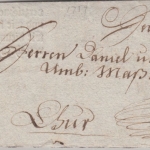 Herren Daniel u
Amb: Maß
Chur